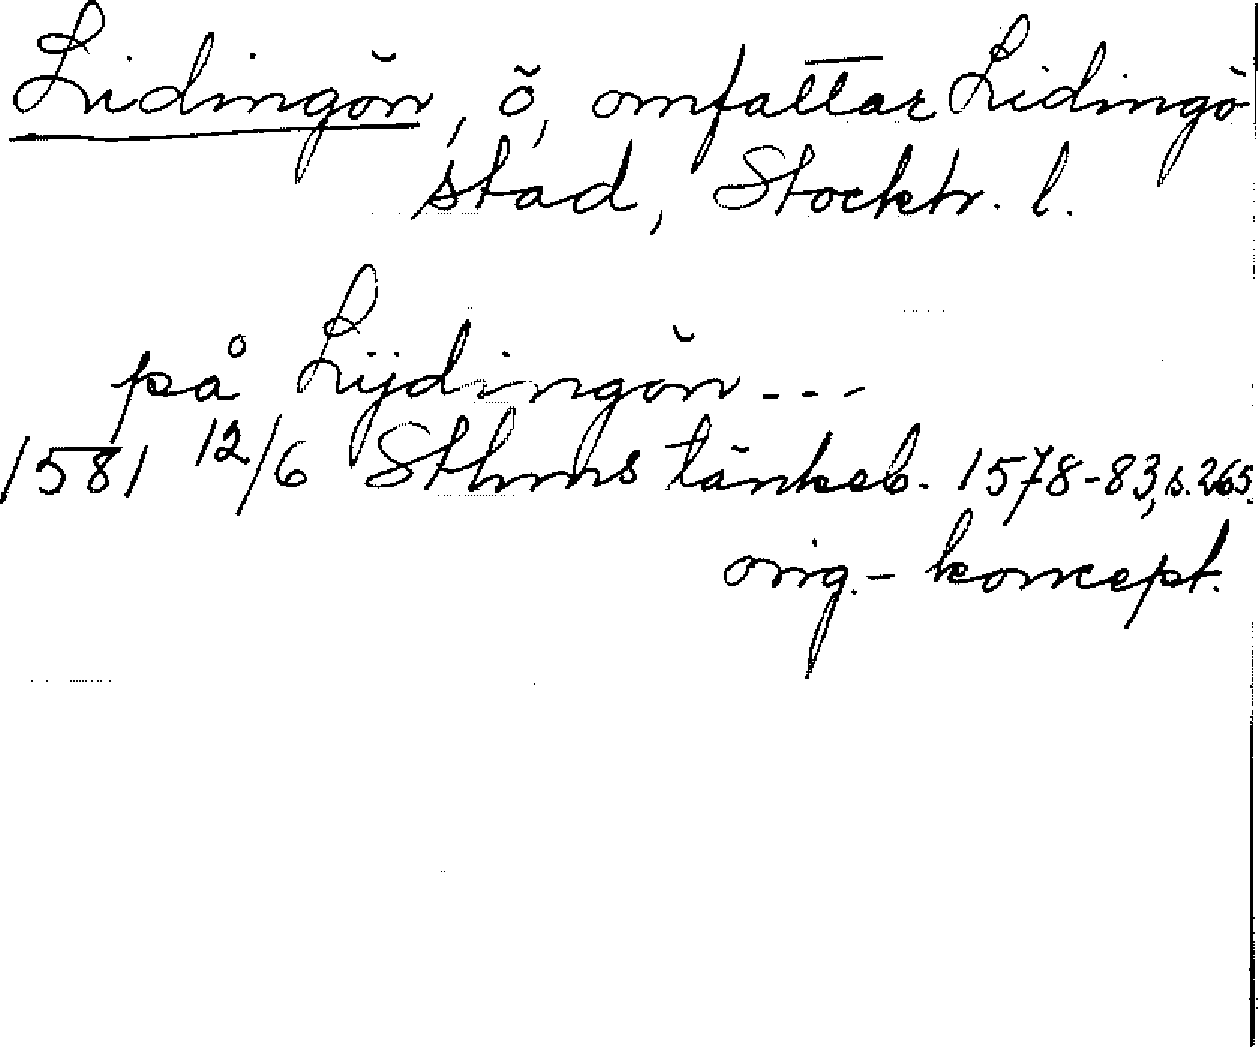 Lidingön, ö, omfattar Lidingö
stad, Stockh. l.
på Lijdingön ---
1581 12/6 Sthms tänkeb. 1578-83, s. 265.
orig.- koncept.